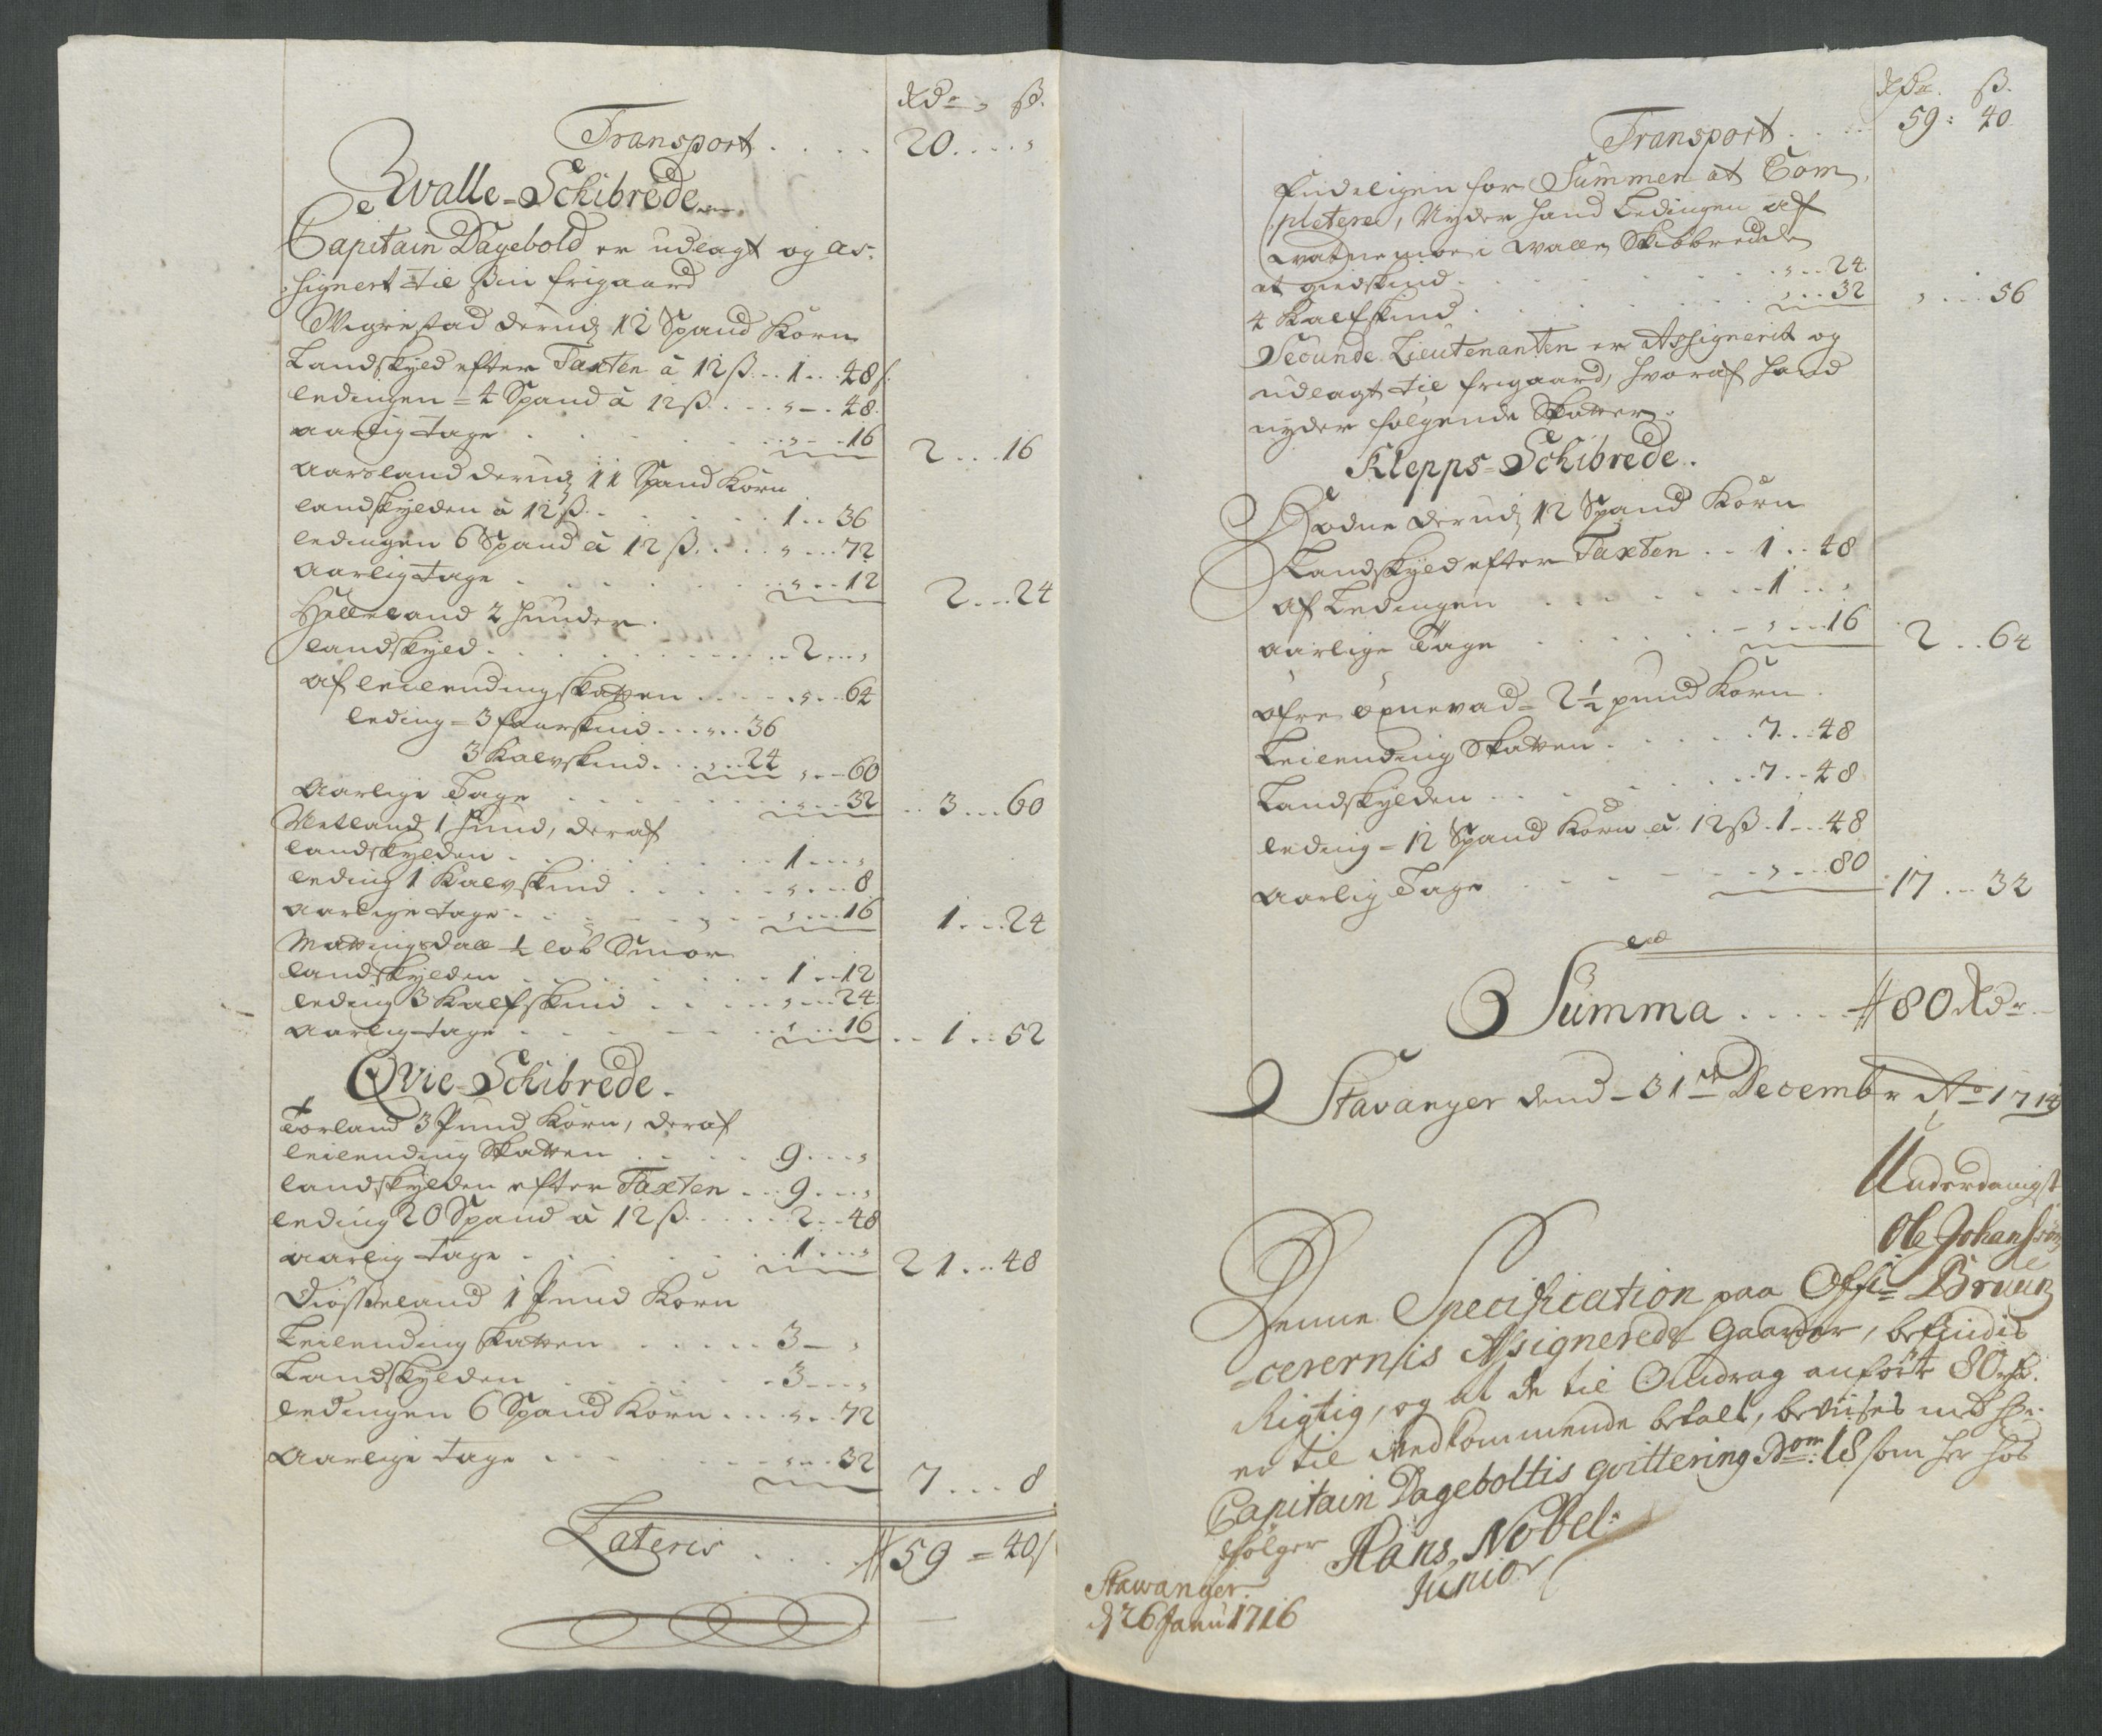 Rdr , ß.
Transport . . . . 20 . . . . ,
Qvalle-Schibrede
Capitain Dagebold er udlagt og as-
signert til sin frigaard
Wigrestad derudj 12 Spand Korn
Landskyld efter Taxten à 12 ß . . 1 . . . 48 ß.
ledingen = 4 Spand à 12 ß . . . , - . 48.
aarlig tage . . . . . . , . . . 16 2 . . . 16
Aarsland derudj 11 Spand Korn
landskylden à 12 ß . . . . . 1 . . 36
ledingen 6 Spand à 12 ß . . . . , . . . 72
Aarlig tage . . . . . . , . . . 12 2 . . . 24
Helleland 2 hunder.
landskyld . . . . . . . . 2 . . . ,
Af leilending skatten . . . . , . . 64
leding = 3 faarskind . . . , . . 36
3 Kalvskind . . . , . . 24 , . . - 60
Aarlige Tage . . . . . . , . . . 32 . . 3 . . . 60
Netland 1 hund, deraf
landskylden . . . . . . . 1 . . . ,
leding 1 Kalvskind . . . . . , . . . 8
Aarlige tage . . . . . . , . . . 16 1 . . . 24
Mattingsdall ½ løb Smør
landskylden . . . . . . 1 . . 12
leding 3 Kalfskind . . . . , . . . 24.
Aarlig tage . . . . . . , . . . 16 . . 1 . . 52
Qvie-Schibrede.
Torland 3 Pund Korn, deraf
leilending Skatten . . . . . 9 . . . ,
landskylden efter Taxten . . . 9 . . . ,
leding 20 Spand à 12 ß . . . . . 2 . . 48
aarlig tage . . . . . . 1 . . . , 21 . . . 48
Diøsseland 1 Pund Korn
Leilending skatten . . . . . 3 - ,
Landskylden . . . . . . 3 . . . ,
ledingen 6 Spand Korn . . . . , . . 72
Aarlige tage . . . . . . , . . . 32 7 . . . 8
Lateris . . . . 59 = 40 ß
Rdr. ß.
Transport . . . . 59 : 40
Endeligen for Summen at Com-
pletere, Nyder hand Ledingen af
Watnemoe i Walle Skibbrede
at giedskind . . . . . . , . . . 24.
4 Kalfskind . . . . . . , . . . 32 , . . . 56
Secunde Lieutenanten er Assignerit og
udlagt til frigaard, hvoraf hand
nyder følgende Skatter.
Klepps-Schibrede.
Bodne derudj 12 Spand Korn
Landskyld efter Taxten . . 1 . . 48
af Ledingen . . . . . . 1 . . ,
aarlige Tage . . . . . . , . . . 16 2 . . 64
øfre øxnevad = 2½ pund Korn.
Leilending Skatten . . . . . 7 . . . 48
Landskylden . . . . . . 7 . . 48
leding = 12 Spand Korn à 12 ß . 1 . . . 48
Aarlig Tage . . . . . . , . . . 80 17 . . . 32
Summa . . . . . 80 Rdr
Stavanger dend 31te Decembr Ao 1714
Underdanigst
Ole Johansøn
Bruun
Denne Specification paa Offi-
cerernis Assignerede Gaarder, befindis
Rigtig, og at de til Ombdrag anførte 80 rdr.
er til Vedkommende betalt, beviises med hr.
Capitain Dageboltis qvittering Nom: 18 som her hos
følger
Hans Nobel
Junior
Stawanger
d 26 Janu 1716